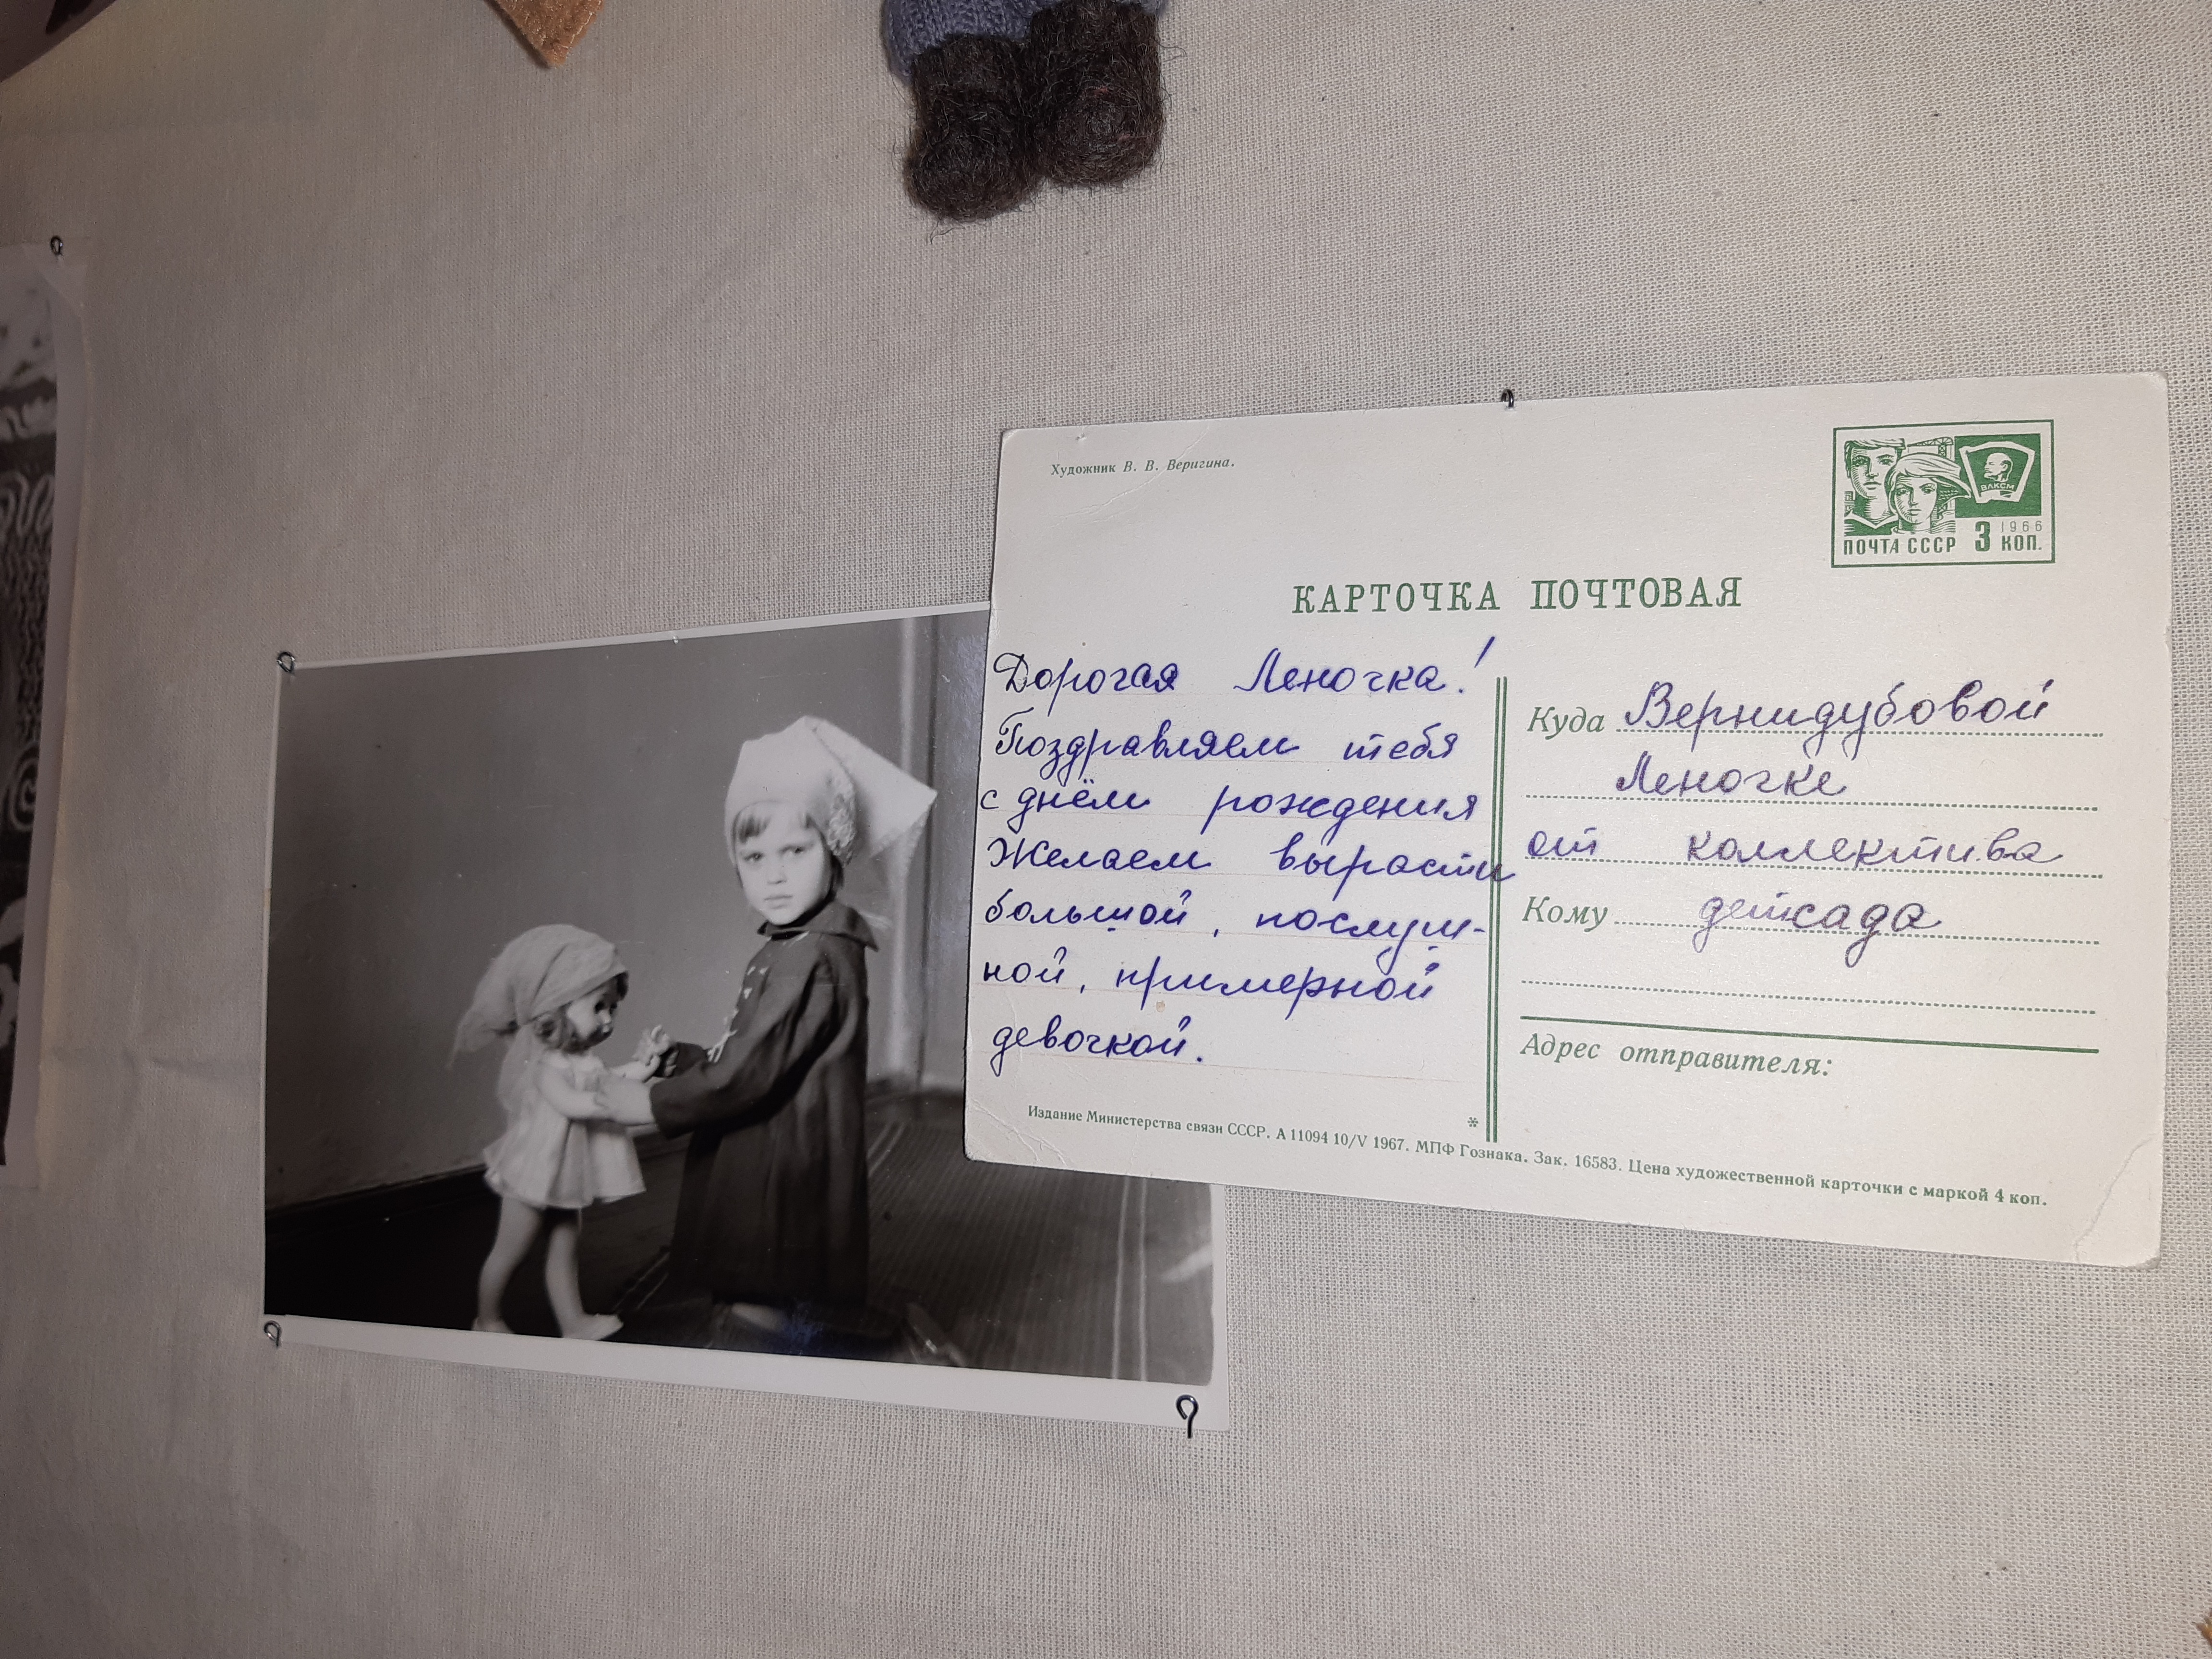 Художник В. В. Веригина.
ВЛКСМ
1966
ПОЧТА СССР 3 КОП.
КАРТОЧКА ПОЧТОВАЯ
Дорогая Леночка!
Поздравляем тебя
с днём рождения
Желаем вырасти
большой, послуш-
ной, примерной
девочкой.
Куда Вернидубовой
Леночке
от коллектива
Кому детсада
Адрес отправителя:
Издание Министерства связи СССР. А 11094 10/V 1967. МПФ Гознака. Зак. 16583. Цена художественной карточки с маркой 4 коп.